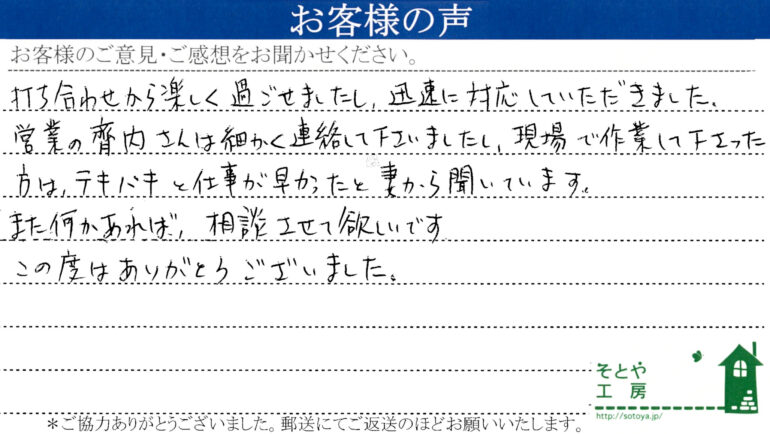 お客様の声
お客様のご意見・ご感想をお聞かせください。
打ち合わせから楽しく過ごせましたし、迅速に対応していただきました。
営業の齊内さんは細かく連絡して下さいましたし、現場で作業して下さった
方は、テキパキと仕事が早かったと妻から聞いています。
また何かあれば、相談させて欲しいです
この度はありがとうございました。
そとや
工房
http://sotoya.jp/
＊ご協力ありがとうございました。郵送にてご返送のほどお願いいたします。